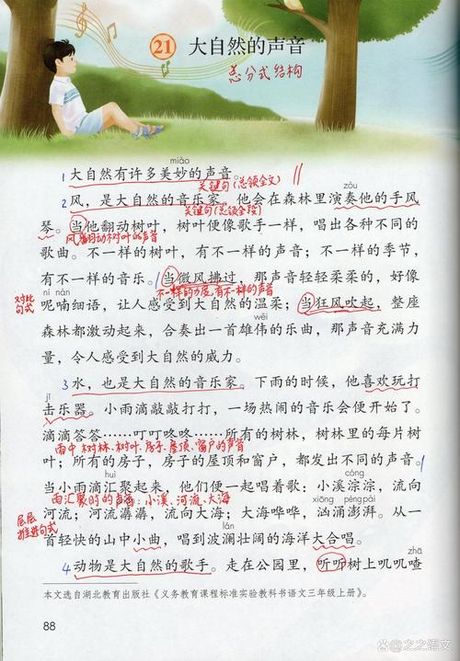 21 大自然的声音
总分式结构
miào
1 大自然有许多美妙的声音。
关键句(总领全文)
zòu
2 风，是大自然的音乐家。他会在森林里演奏他的手风
关键句(总领全段)
琴。当他翻动树叶，树叶便像歌手一样，唱出各种不同的
风翻动树叶的声音
歌曲。不一样的树叶，有不一样的声音；不一样的季节，
有不一样的音乐。当微风拂过，那声音轻轻柔柔的，好像
不一样的力度，有不一样的声音
ní nán
对比句式
呢喃细语，让人感受到大自然的温柔；当狂风吹起，整座
wěi
森林都激动起来，合奏出一首雄伟的乐曲，那声音充满力
量，令人感受到大自然的威力。
3 水，也是大自然的音乐家。下雨的时候，他喜欢玩打
jī
击乐器。小雨滴敲敲打打，一场热闹的音乐会便开始了。
滴滴答答……叮叮咚咚……所有的树林，树林里的每片树
雨中树林、树叶、房子、屋顶、窗户的声音
叶；所有的房子，房子的屋顶和窗户，都发出不同的声音。
huì cóng
当小雨滴汇聚起来，他们便一起唱着歌：小溪淙淙，流向
雨汇聚时的声音：小溪、河流、大海
xiōng péng pài
河流；河流潺潺，流向大海；大海哗哗，汹涌澎湃。从一
层层推进句式
lán
首轻快的山中小曲，唱到波澜壮阔的海洋大合唱。
zhā
4 动物是大自然的歌手。走在公园里，听听树上叽叽喳
本文选自湖北教育出版社《义务教育课程标准实验教科书语文三年级上册》。
88
之之语文